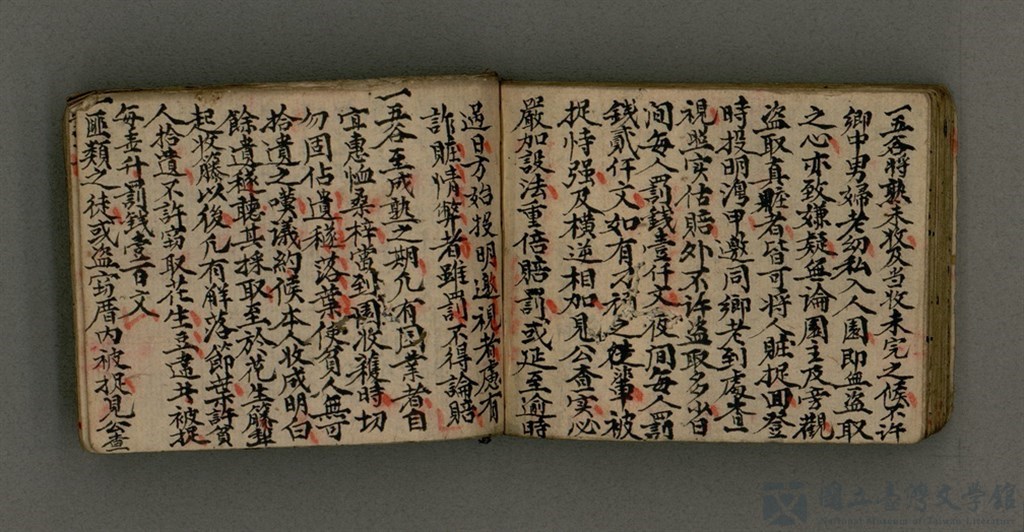 一五谷将熟未收及当收未完之候不许
鄉中男婦老幼私入人園即無盜取
之心亦致嫌疑無論園主及旁觀
盜取真賍者皆可将人賍捉回登
時投明灣甲邀同鄉老到處查
視照实估賠外不许盜取多少日
间每人罰錢壹仟文夜间每人罰
錢貳仟文如有刁頑之徒輩被
捉恃强及橫逆相加見公查实必
嚴加設法重倍賠罰或延至逾時
過日方始投明邀視者慮有
詐賍情弊者雖罰不得論賠
一五谷至成熟之期凡有园業者自
宜惠恤桑梓當到園收穫時切
勿固佔遺穗落葉使貧人無可
拾遺之嘆議約候本人收成明白
餘遺穗聽其採取至於花生籐
起收籐以後凡有觧落節葉許貧
人拾遺不许窃取花生豆逮共被捉
每壹升罰錢壹百文
一匪類之徒或盜窃厝内被捉見公查
國立臺灣文學館
National Museum of Taiwan Literature